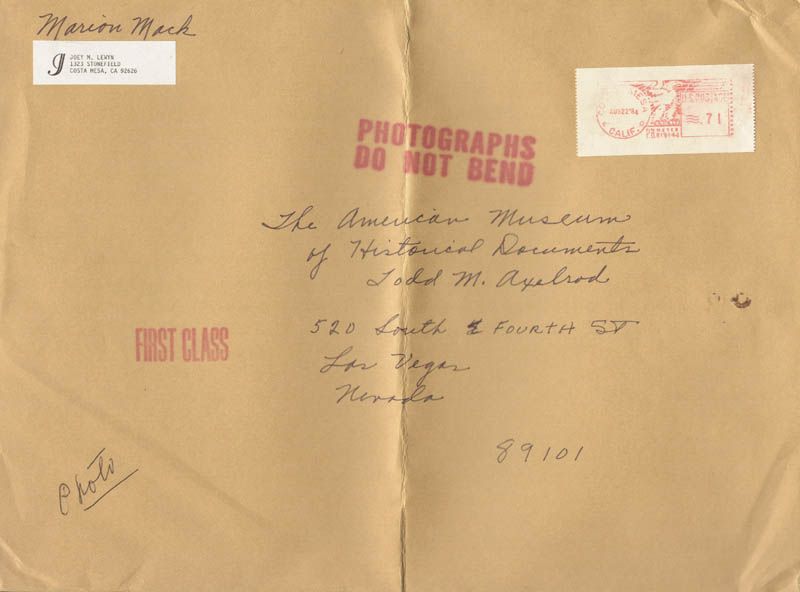 Marion Mack
J
JOEY M. LEWYN
1323 STONEFIELD
COSTA MESA, CA 92626
MESA
AUG 22 '84
CALIF.
U.S. POSTAGE
.71
PB METER
PHOTOGRAPHS
DO NOT BEND
The American Museum
of Historical Documents
Todd M. Axelrod
520 South FOURTH ST
Las Vegas
Nevada
89101
FIRST CLASS
Photo